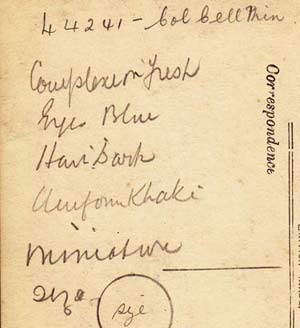 44241 - Col Cell Min
Complexion Fresh
Eyes Blue
Hair Dark
Uniform Khaki
Miniature
Correspondence